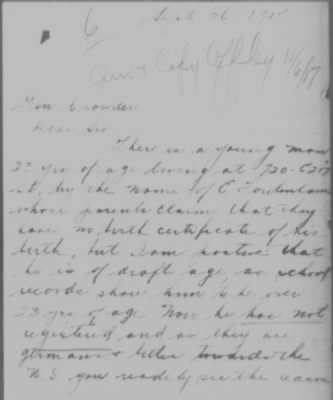 6
Sept 26 1917
Ans & Copy Offley 11/6/17
Gen. Crowder
Dear Sir
There is a young man
23 yrs of age living at 720-62nd
St, by the name of C.
whose parents claim that they
have no birth certificate of his
birth, but I am positive that
he is of draft age, as school
records show him to be over
23 yrs of age Now he has not
registered and as they are
germans & bitter towards the
U S. you readily see the reason